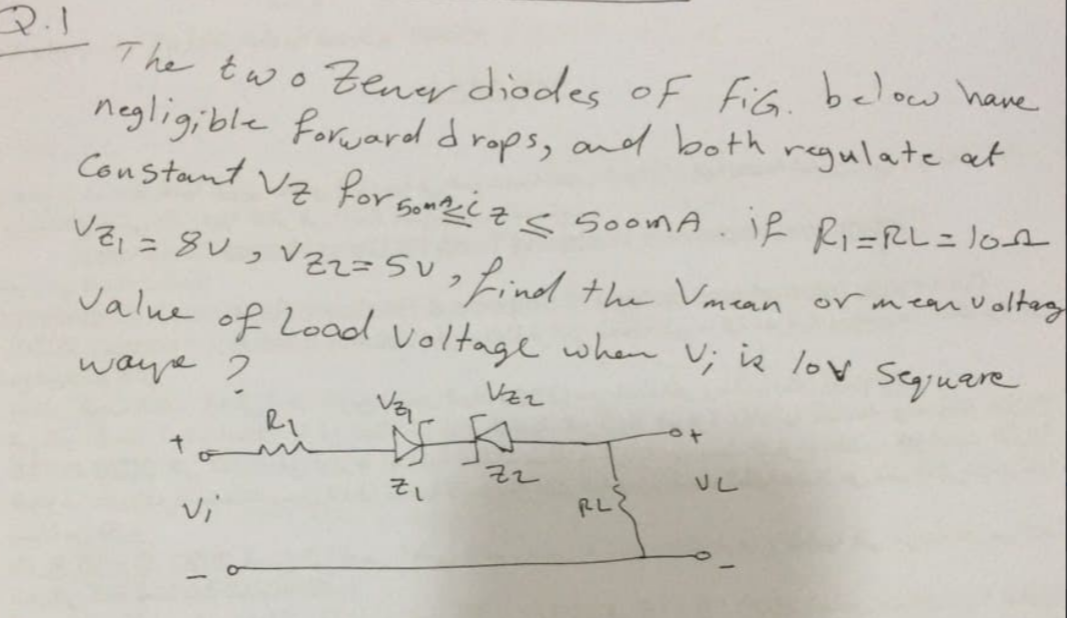 Q.1
The two Zener diodes of FiG. below have
negligible forward drops, and both regulate at
Constant VZ for 50mA ≤ iz ≤ 500mA. if R1=RL=10Ω
VZ1 = 8V, VZ2=5V, find the Vmean or mean voltag
Value of Load Voltage when Vi is 10V Sequare
wave ?
R1 VZ1 VZ2
+ +
Z1 Z2
Vi RL VL
- -